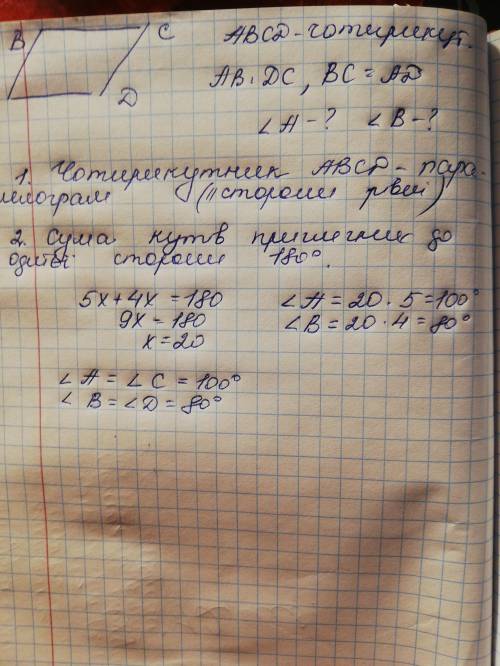 B
C
D
ABCD - чотирикут.
AB : DC, BC = AD
∠A - ? ∠B - ?
1. Чотирикутник ABCD - пара-
лелограм (|| сторони рвні)
2. Сума кутв прилеглих до
однієї сторони 180°.
5x + 4x = 180
9x = 180
x = 20
∠A = 20 · 5 = 100°
∠B = 20 · 4 = 80°
∠A = ∠C = 100°
∠B = ∠D = 80°